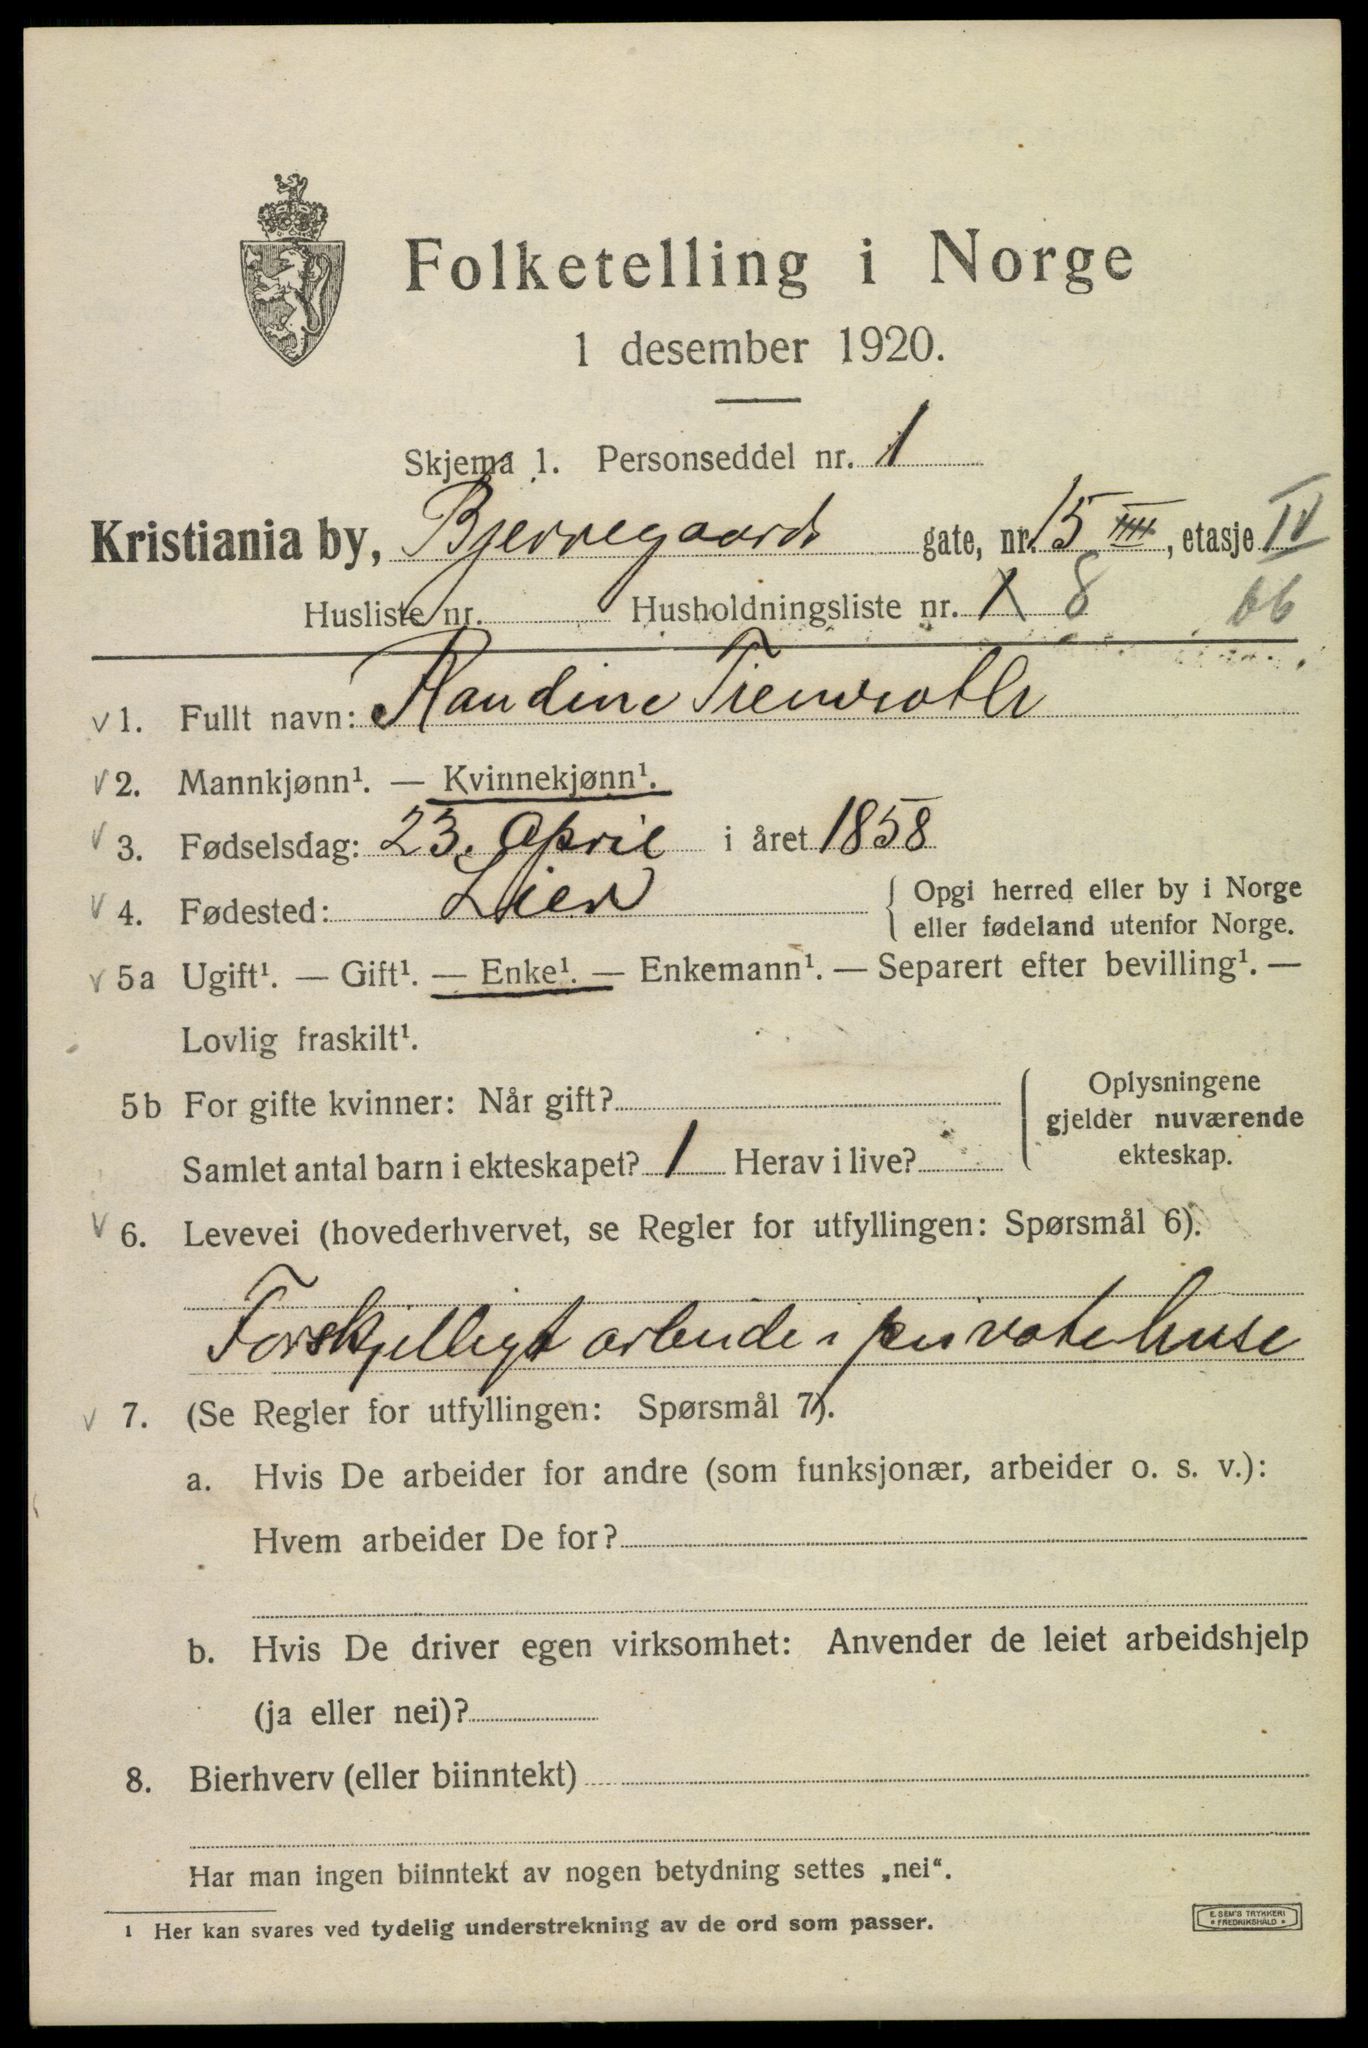 Folketelling i Norge
1 desember 1920.
Skjema 1. Personseddel nr. 1
Kristiania by, Bjerregaards gate, nr. 15 IIII, etasje IV
Husliste nr. Husholdningsliste nr. 1 8 66
1. Fullt navn: Randine Tiemroth
2. Mannkjønn¹. — Kvinnekjønn¹.
3. Fødselsdag: 23. April i året 1858
4. Fødested: Lier { Opgi herred eller by i Norge
eller fødeland utenfor Norge.
5a Ugift¹. — Gift¹. — Enke¹. — Enkemann¹. — Separert efter bevilling¹. —
Lovlig fraskilt¹.
5b For gifte kvinner: Når gift? { Oplysningene
gjelder nuværende
Samlet antal barn i ekteskapet? 1 Herav i live? ekteskap.
6. Levevei (hovederhvervet, se Regler for utfyllingen: Spørsmål 6).
Forskjelligt arbeide i private huse
7. (Se Regler for utfyllingen: Spørsmål 7).
a. Hvis De arbeider for andre (som funksjonær, arbeider o. s. v.):
Hvem arbeider De for?
b. Hvis De driver egen virksomhet: Anvender de leiet arbeidshjelp
(ja eller nei)?
8. Bierhverv (eller biinntekt)
Har man ingen biinntekt av nogen betydning settes „nei“.
1 Her kan svares ved tydelig understrekning av de ord som passer.
E. SEM'S TRYKKERI
* FREDRIKSHALD *